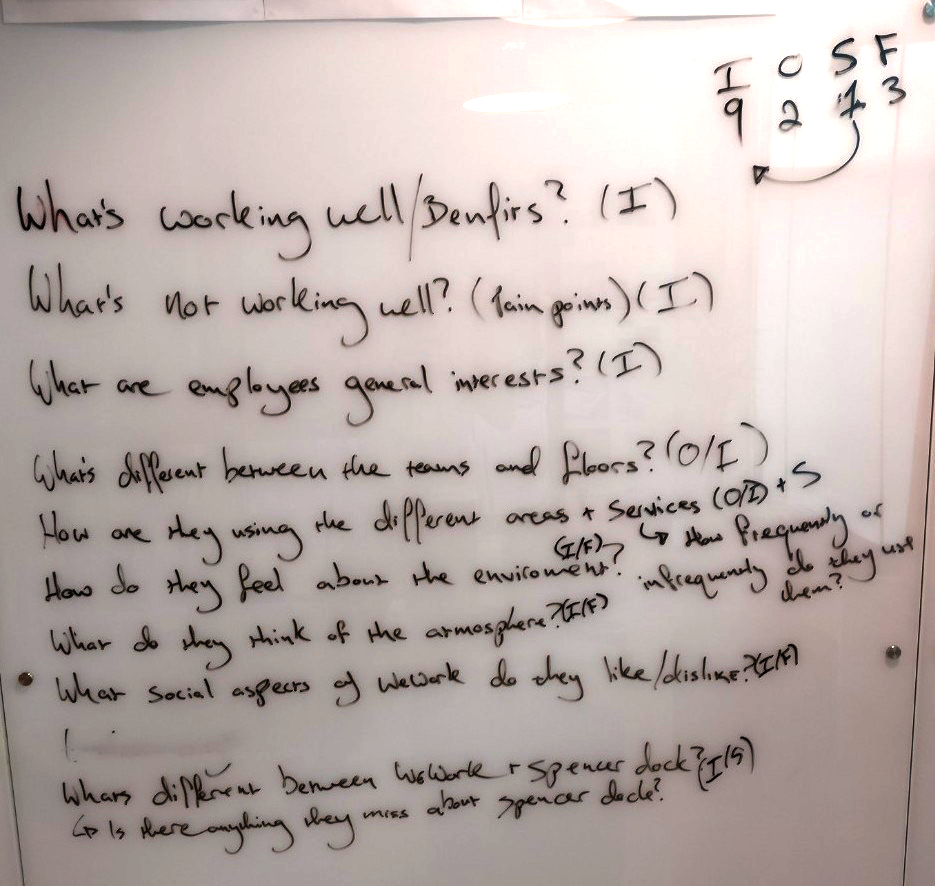 I O S F
9 2 1 3
What's working well/Benfits? (I)
What's not working well? (Pain points) (I)
What are employees general interests? (I)
What's different between the teams and floors? (O/I)
How are they using the different areas + services (O/I) + S
↳ How frequently or
infrequently do they use
them?
How do they feel about the enviroment? (I/F)
What do they think of the atmosphere? (I/F)
What social aspects of WeWork do they like/dislike? (I/F)
Whats different between WeWork + Spencer dock? (I/S)
↳ Is there anything they miss about spencer dock?